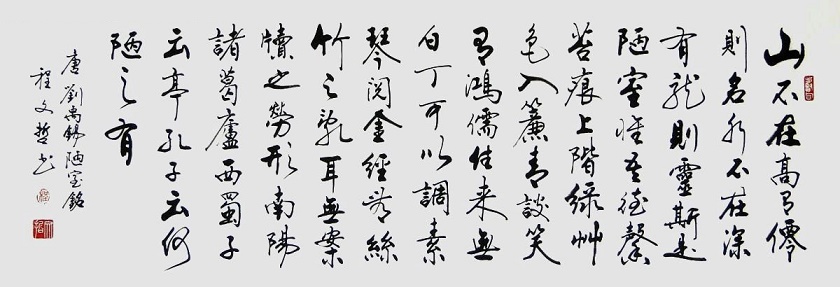 山不在高有僊
則名水不在深
有龍則靈斯是
陋室惟吾德馨
苔痕上階綠艸
色入簾青談笑
有鴻儒往來無
白丁可以調素
琴閱金經無絲
竹之亂耳無案
牘之勞形南陽
諸葛廬西蜀子
云亭孔子云何
陋之有
唐劉禹錫陋室銘
程文哲书